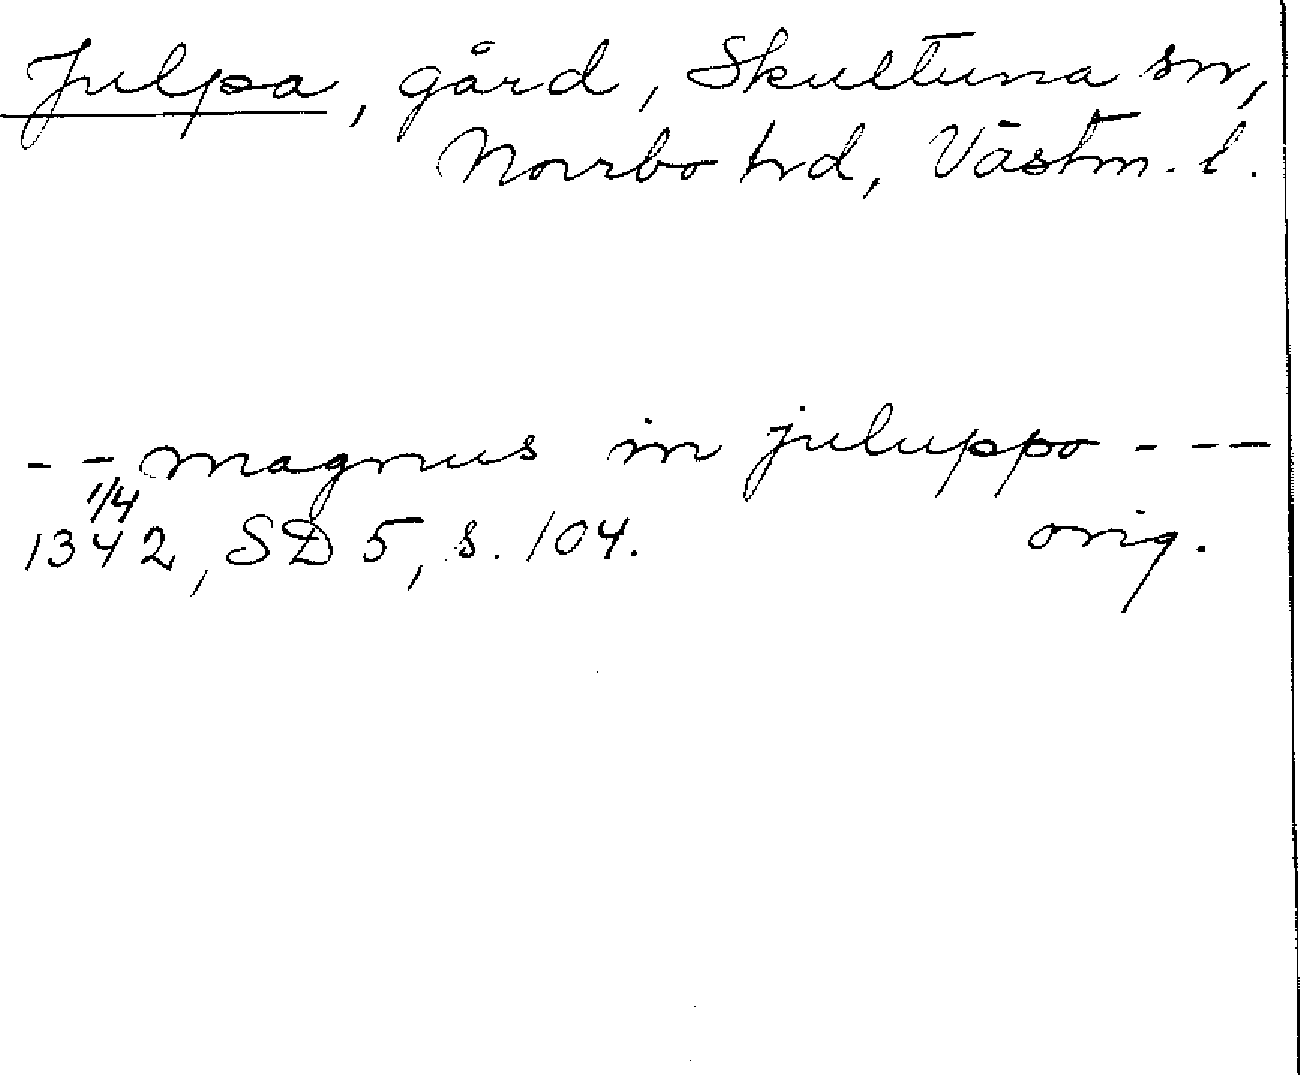 Julpa, gård, Skultuna sn,
Norrbo hd, Västm. l.
- - magnus in juluppo - - -
1/4
1342, SD 5, s. 104. orig.